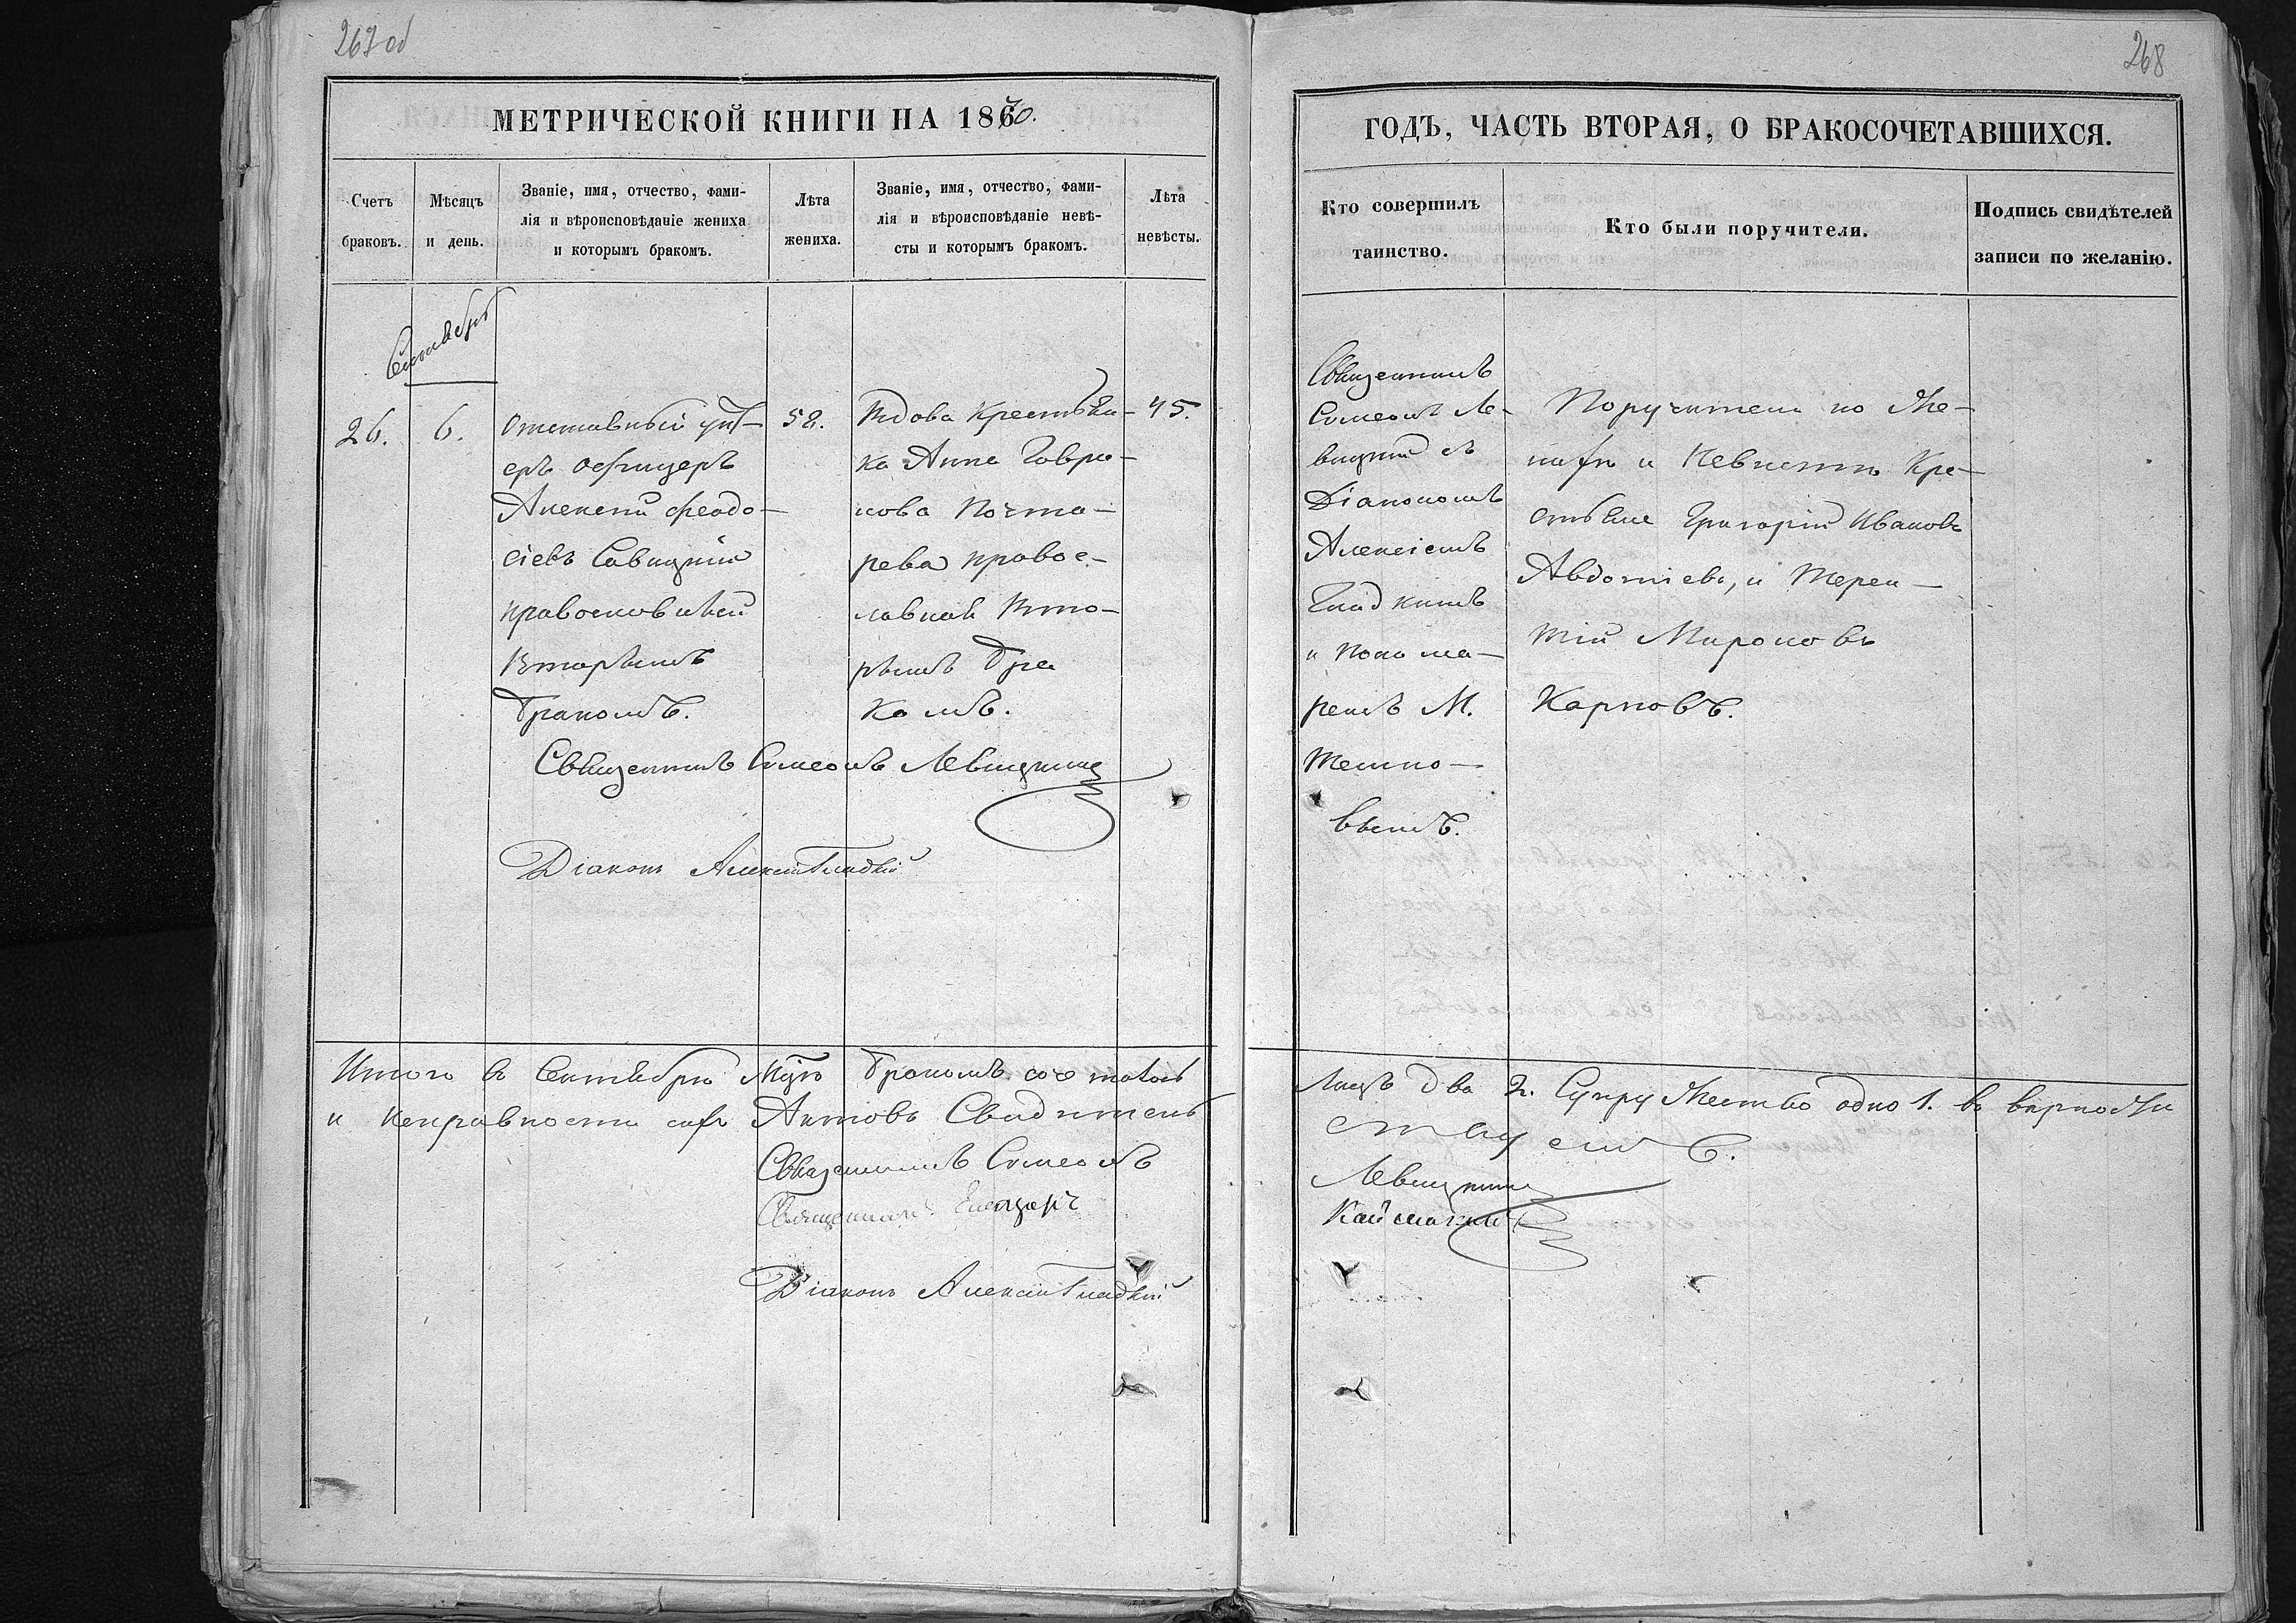 267 об
МЕТРИЧЕСКОЙ КНИГИ НА 1870.
Счетъ
браковъ.
Мѣсяцъ
и день.
Званіе, имя, отчество, фами-
лія и вѣроисповѣданіе жениха
и которымъ бракомъ.
Лѣта
жениха.
Званіе, имя, отчество, фами-
лія и вѣроисповѣданіе невѣ-
сты и которымъ бракомъ.
Лѣта
невѣсты.
Сентябрь
26.
6.
Отставный унт-
еръ офицеръ
Алексей Феодо-
сіевъ Савицкій
православный
вторымъ
бракомъ.
58.
Вдова Крестьян-
ка Анна Гаври-
лова Почта-
рева правос-
лавная вто-
рымъ бра
комъ.
45.
Священникъ Симеонъ Левицкій
Діаконъ Алексій Гладкій
Итого въ Сентябрѣ М-цѣ бракомъ сочетались
и исправности сихъ Актовъ Свидѣтель
Священникъ Симеонъ
Священникъ
Діаконъ Алексій Гладкій
268
ГОДЪ, ЧАСТЬ ВТОРАЯ, О БРАКОСОЧЕТАВШИХСЯ.
Кто совершилъ
таинство.
Кто были поручители.
Подпись свидѣтелей
записи по желанію.
Священникъ
Симеонъ Ле-
вицкій съ
Діакономъ
Алексіемъ
Гладкимъ
и понома-
ремъ М.
Темно-
вымъ.
Поручители по Же-
нихѣ и Невѣстѣ Кре-
стьяне Григорій Ивановъ
Авдотіевъ, и Терен-
тій Мироновъ
Карповъ.
Лицъ два 2. Супружество одно 1. въ вѣрности
ствуемъ.
Левицкій